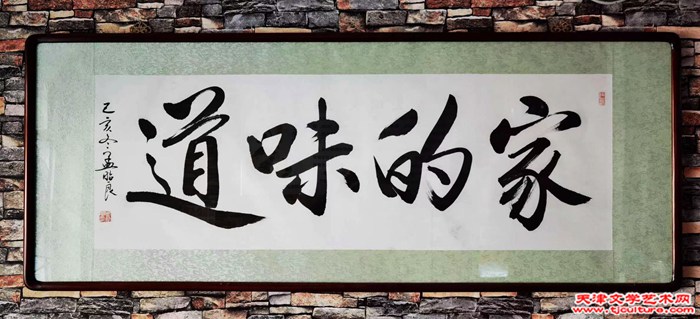 家的味道
己亥冬孟昭良
天津文学艺术网
www.tjculture.com